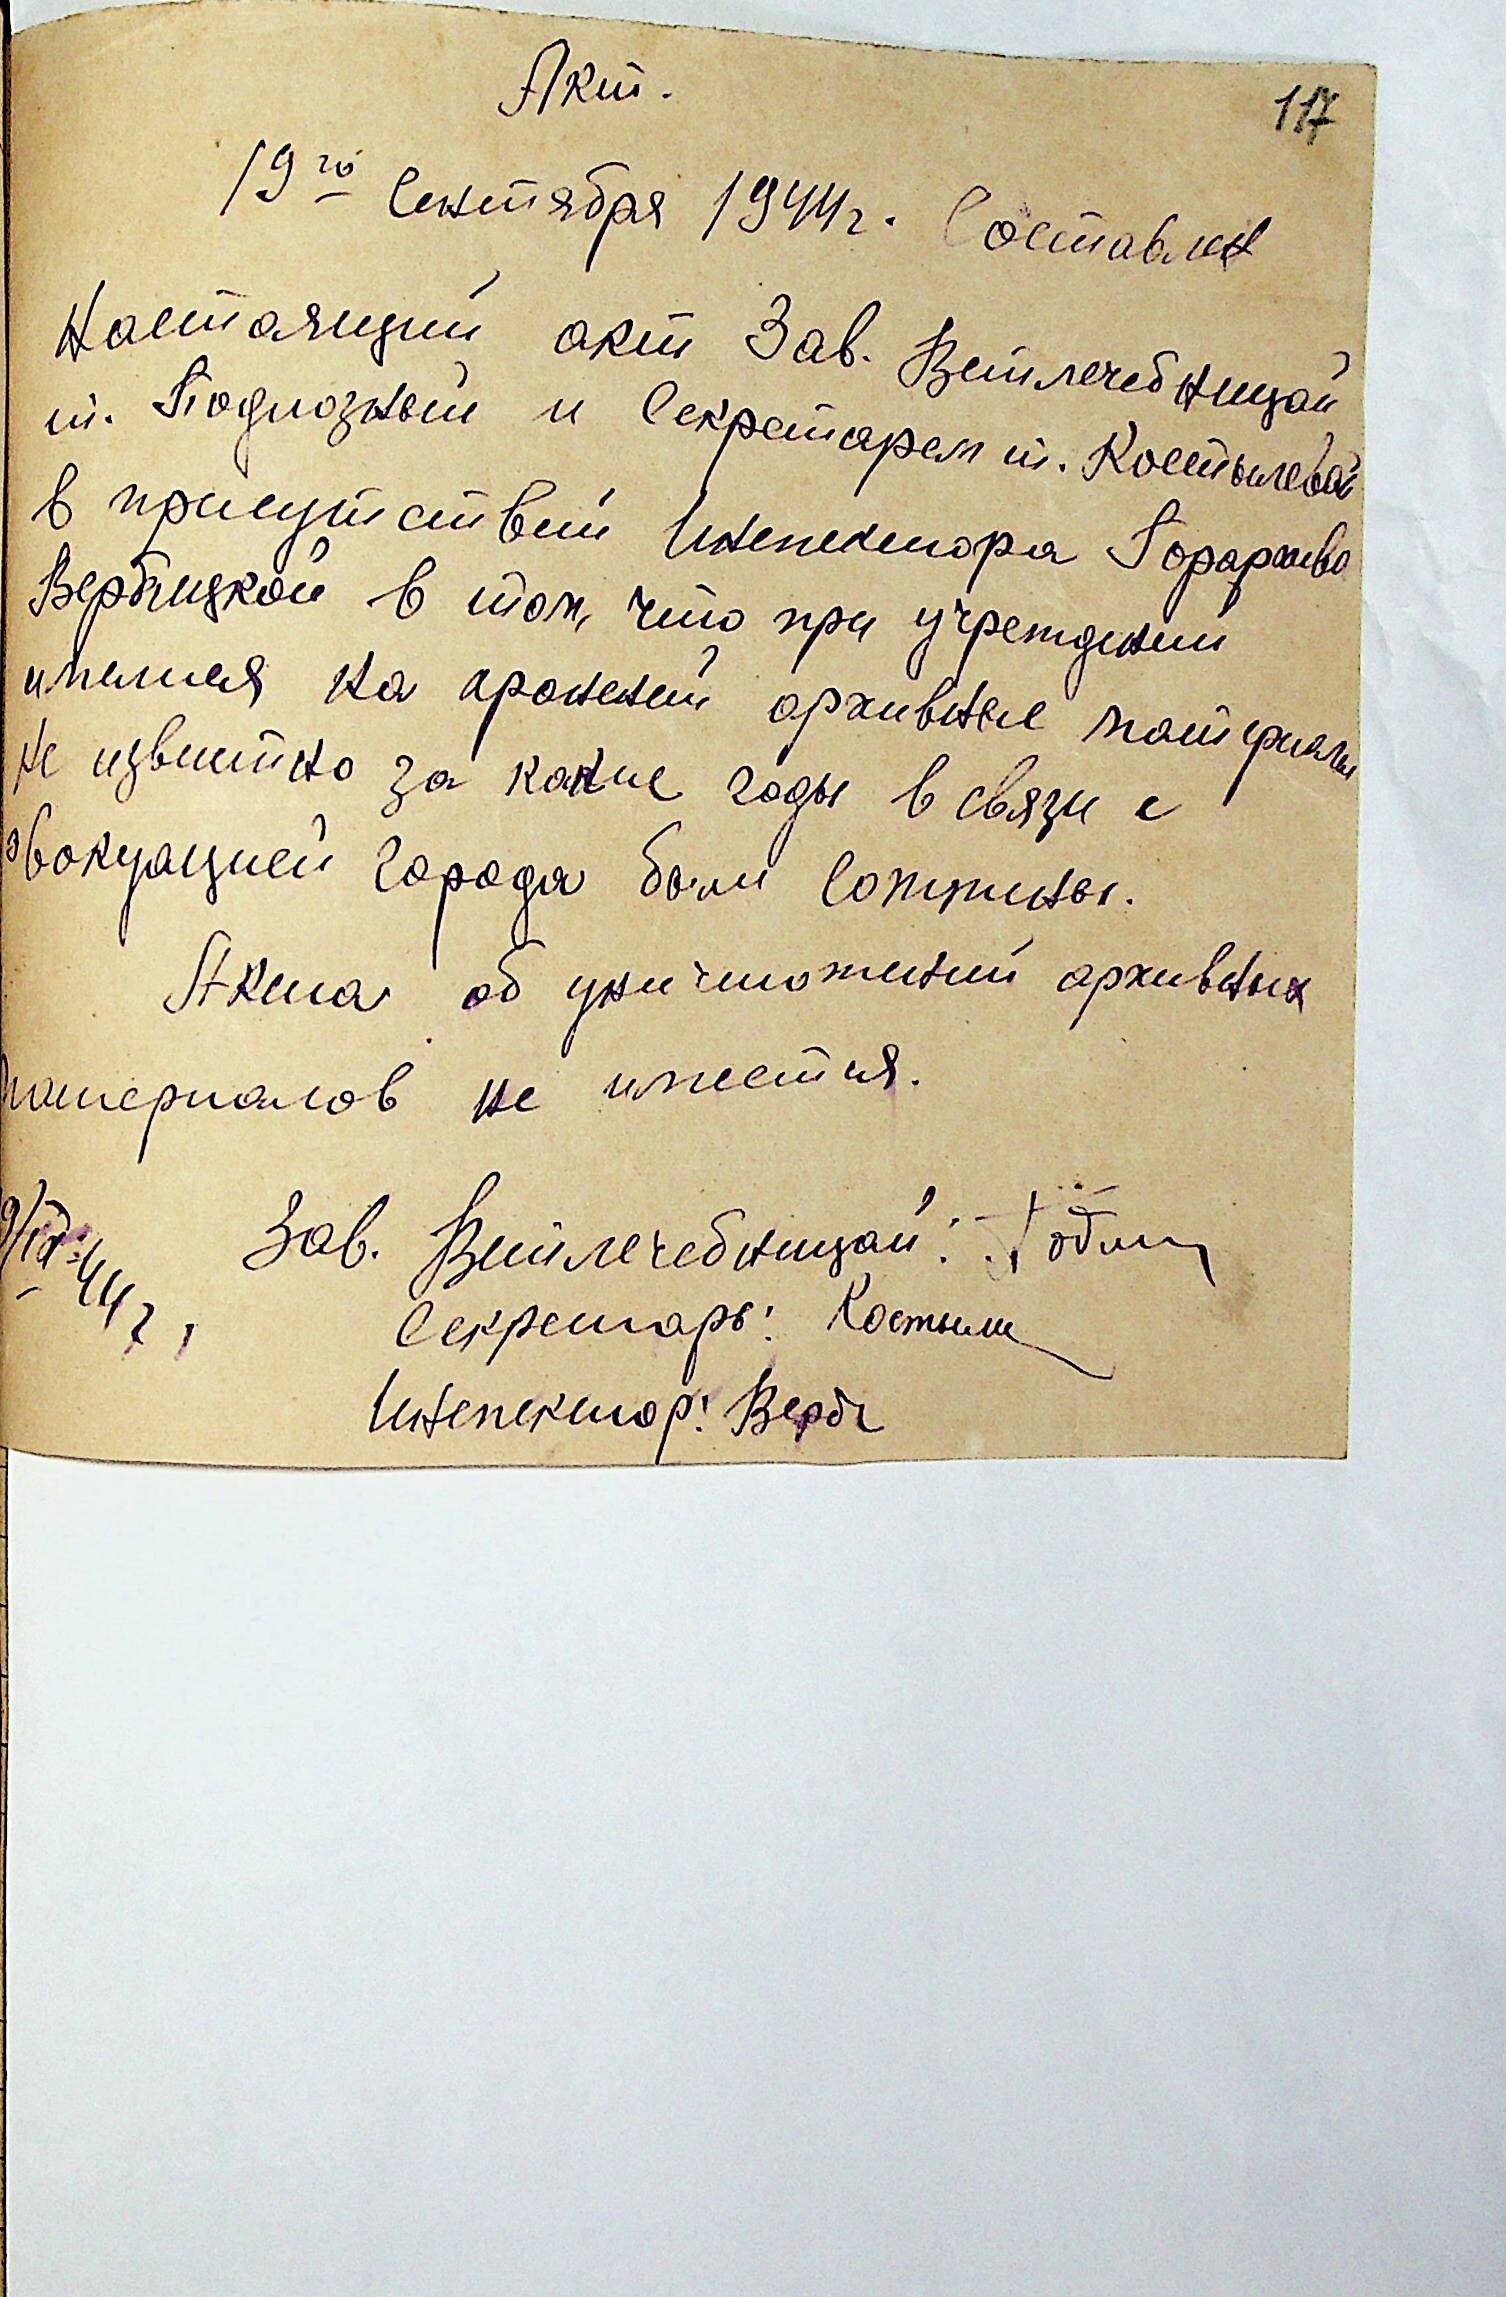 117
Акт.
19го Сентября 1944г. Составлен
Настоящий акт Зав. Ветлечебницей
т. Подлозный и Секретарем т. Костылевой
в присутствий Инспектора Горархива
Вербицкой в том, что при учреждений
имелися на хронений архивные материалы
не известно за какие годы в связи с
эвакуацией города были сожжены.
Акта об уничтожений архивных
материалов не имеется.
9/IX-44г.
Зав. Ветлечебницей:
Секретарь: Костыле
Инспектор: Верб